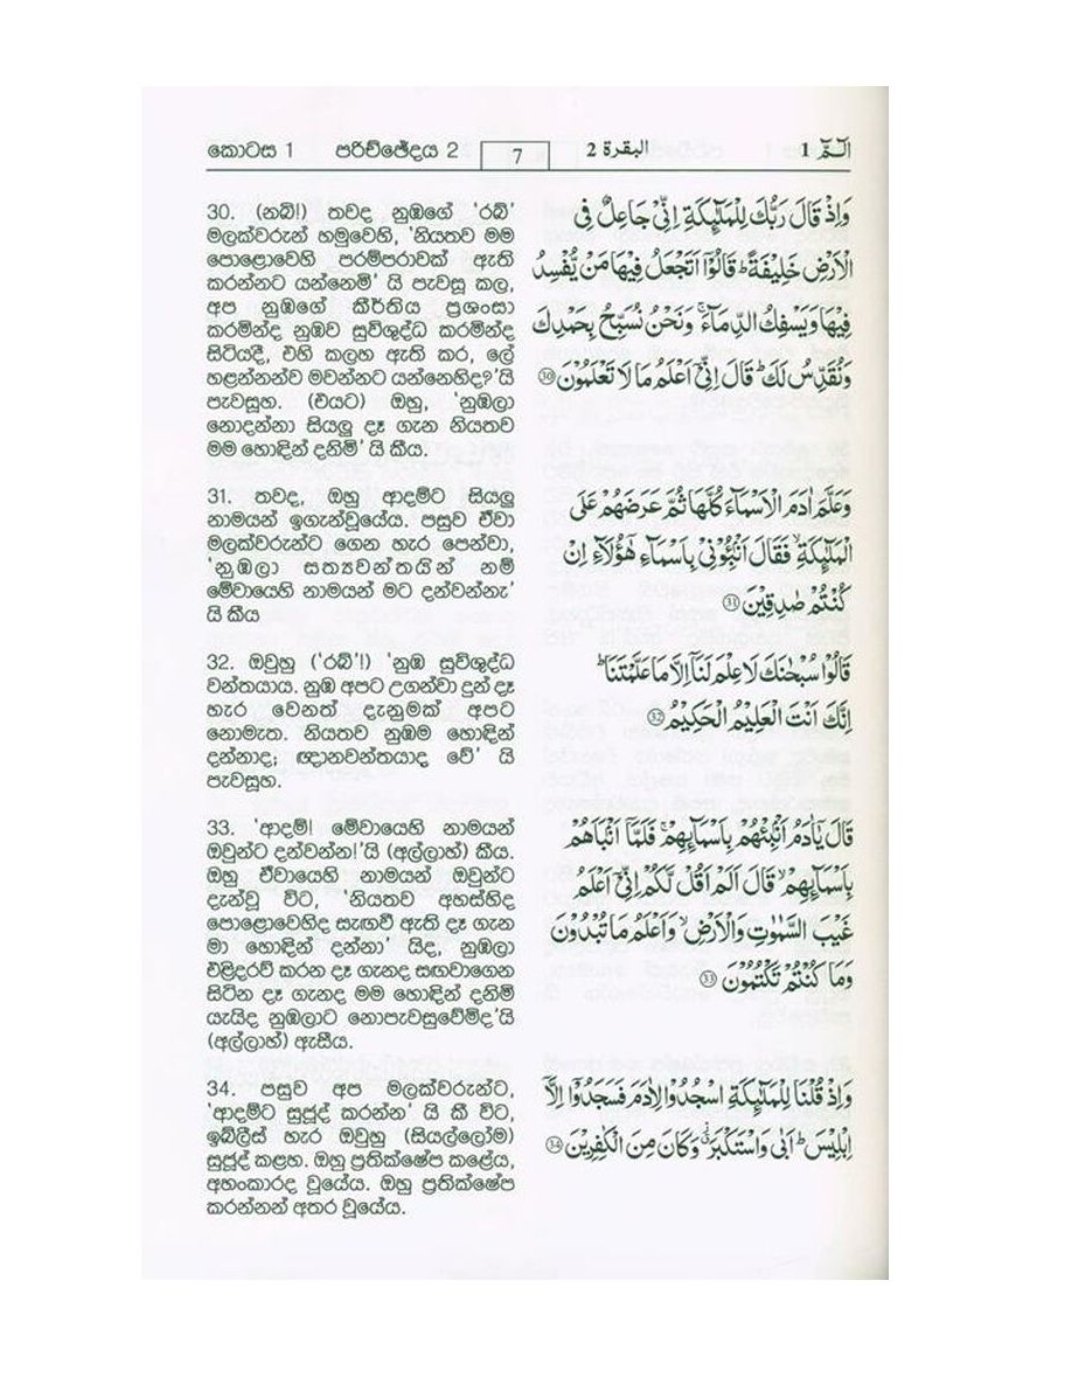 කොටස 1 පරිච්ඡේදය 2 7 البقرة 2 الٓمّٓ 1
30. (නබි!) තවද නුඹගේ 'රබ්'
මලක්වරුන් හමුවෙහි, 'නියතව මම
පොළොවෙහි පරම්පරාවක් ඇති
කරන්නට යන්නෙමි' යි පැවසූ කල,
අප නුඹගේ කීර්තිය ප්‍රශංසා
කරමින්ද නුඹව සුවිශුද්ධ කරමින්ද
සිටියදී, එහි කලහ ඇති කර, ලේ
හළන්නන්ව මවන්නට යන්නෙහිද?'යි
පැවසූහ. (එයට) ඔහු, 'නුඹලා
නොදන්නා සියලු දෑ ගැන නියතව
මම හොඳින් දනිමි' යි කීය.
وَاِذْ قَالَ رَبُّكَ لِلْمَلٰٓئِكَةِ اِنِّیْ جَاعِلٌ فِی
الْاَرْضِ خَلِیْفَةً ؕ قَالُوْۤا اَتَجْعَلُ فِیْهَا مَنْ یُّفْسِدُ
فِیْهَا وَیَسْفِكُ الدِّمَآءَ ۚ وَنَحْنُ نُسَبِّحُ بِحَمْدِكَ
وَنُقَدِّسُ لَكَ ؕ قَالَ اِنِّیْۤ اَعْلَمُ مَا لَا تَعْلَمُوْنَ ۝30
31. තවද, ඔහු ආදම්ට සියලු
නාමයන් ඉගැන්වූයේය. පසුව ඒවා
මලක්වරුන්ට ගෙන හැර පෙන්වා,
'නුඹලා සත්‍යවන්තයින් නම්
මේවායෙහි නාමයන් මට දන්වන්නැ'
යි කීය
وَعَلَّمَ اٰدَمَ الْاَسْمَآءَ كُلَّهَا ثُمَّ عَرَضَهُمْ عَلَی
الْمَلٰٓئِكَةِ ۙ فَقَالَ اَنْۢبِـُٔوْنِیْ بِاَسْمَآءِ هٰۤؤُلَآءِ اِنْ
كُنْتُمْ صٰدِقِیْنَ ۝31
32. ඔවුහු ('රබ්'!) 'නුඹ සුවිශුද්ධ
වන්තයාය. නුඹ අපට උගන්වා දුන් දෑ
හැර වෙනත් දැනුමක් අපට
නොමැත. නියතව නුඹම හොඳින්
දන්නාද; ඥානවන්තයාද වේ' යි
පැවසූහ.
قَالُوْا سُبْحٰنَكَ لَا عِلْمَ لَنَاۤ اِلَّا مَا عَلَّمْتَنَا ؕ
اِنَّكَ اَنْتَ الْعَلِیْمُ الْحَكِیْمُ ۝32
33. 'ආදම්! මේවායෙහි නාමයන්
ඔවුන්ට දන්වන්න!'යි (අල්ලාහ්) කීය.
ඔහු ඒවායෙහි නාමයන් ඔවුන්ට
දැන්වූ විට, 'නියතව අහස්හිද
පොළොවෙහිද සැඟවී ඇති දෑ ගැන
මා හොඳින් දන්නා' යිද, නුඹලා
එළිදරව් කරන දෑ ගැනද සඟවාගෙන
සිටින දෑ ගැනද මම හොඳින් දනිමි
යැයිද නුඹලාට නොපැවසුවේමිද'යි
(අල්ලාහ්) ඇසීය.
قَالَ یٰۤاٰدَمُ اَنْۢبِئْهُمْ بِاَسْمَآئِهِمْ ۚ فَلَمَّاۤ اَنْۢبَاَهُمْ
بِاَسْمَآئِهِمْ ۙ قَالَ اَلَمْ اَقُلْ لَّكُمْ اِنِّیْۤ اَعْلَمُ
غَیْبَ السَّمٰوٰتِ وَالْاَرْضِ ۙ وَاَعْلَمُ مَا تُبْدُوْنَ
وَمَا كُنْتُمْ تَكْتُمُوْنَ ۝33
34. පසුව අප මලක්වරුන්ට,
'ආදම්ට සුජූද් කරන්න' යි කී විට,
ඉබ්ලීස් හැර ඔවුහු (සියල්ලෝම)
සුජූද් කළහ. ඔහු ප්‍රතික්ෂේප කළේය,
අහංකාරද වූයේය. ඔහු ප්‍රතික්ෂේප
කරන්නන් අතර වූයේය.
وَاِذْ قُلْنَا لِلْمَلٰٓئِكَةِ اسْجُدُوْا لِاٰدَمَ فَسَجَدُوْۤا اِلَّاۤ
اِبْلِیْسَ ؕ اَبٰی وَاسْتَكْبَرَ ٘ۗ وَكَانَ مِنَ الْكٰفِرِیْنَ ۝34